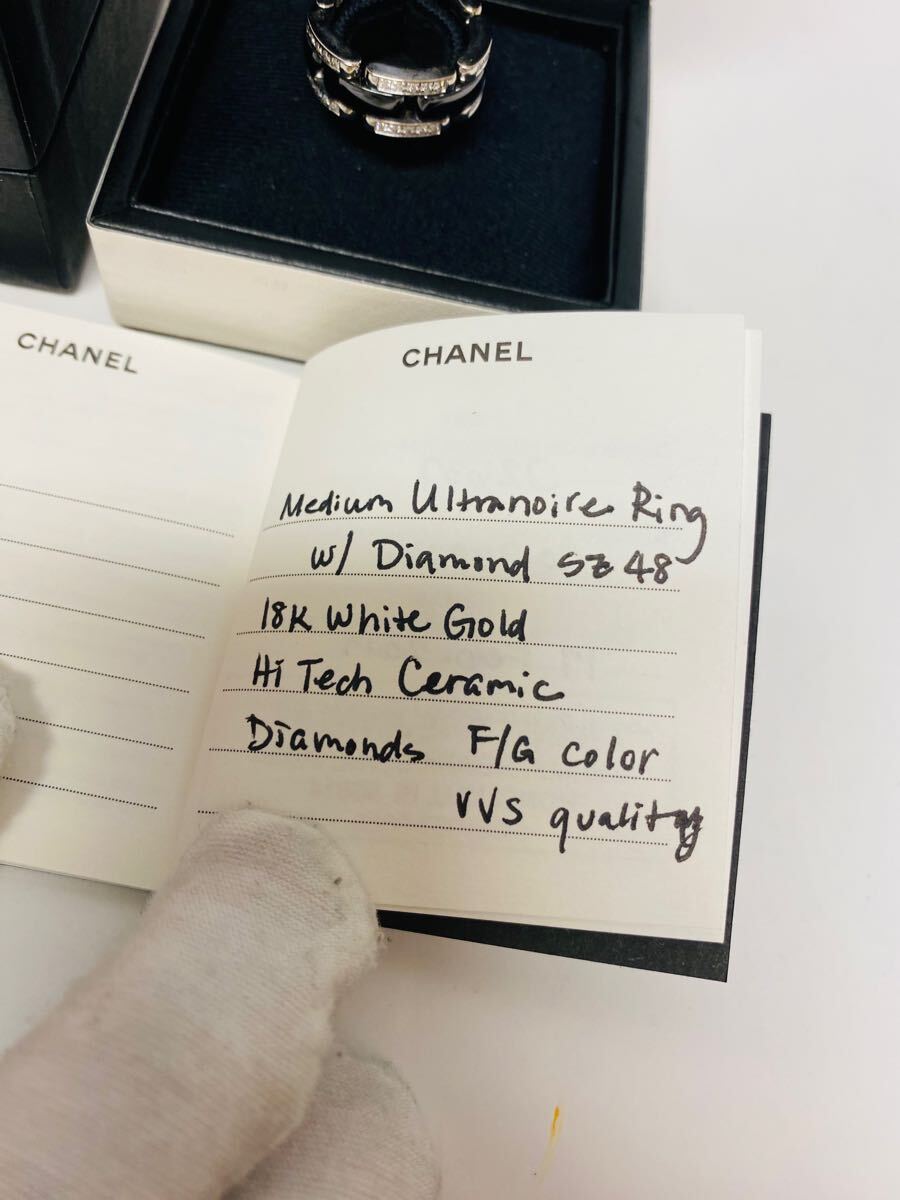 CHANEL
CHANEL
Medium Ultranoire Ring
w/ Diamond sz 48
18K White Gold
Hi Tech Ceramic
Diamonds F/G color
VVS quality